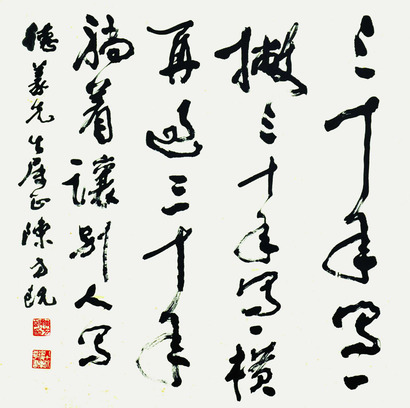 三十年写一
撇三十年写一横
再過三十年
躺着讓别人写
德義先生属正陳方既